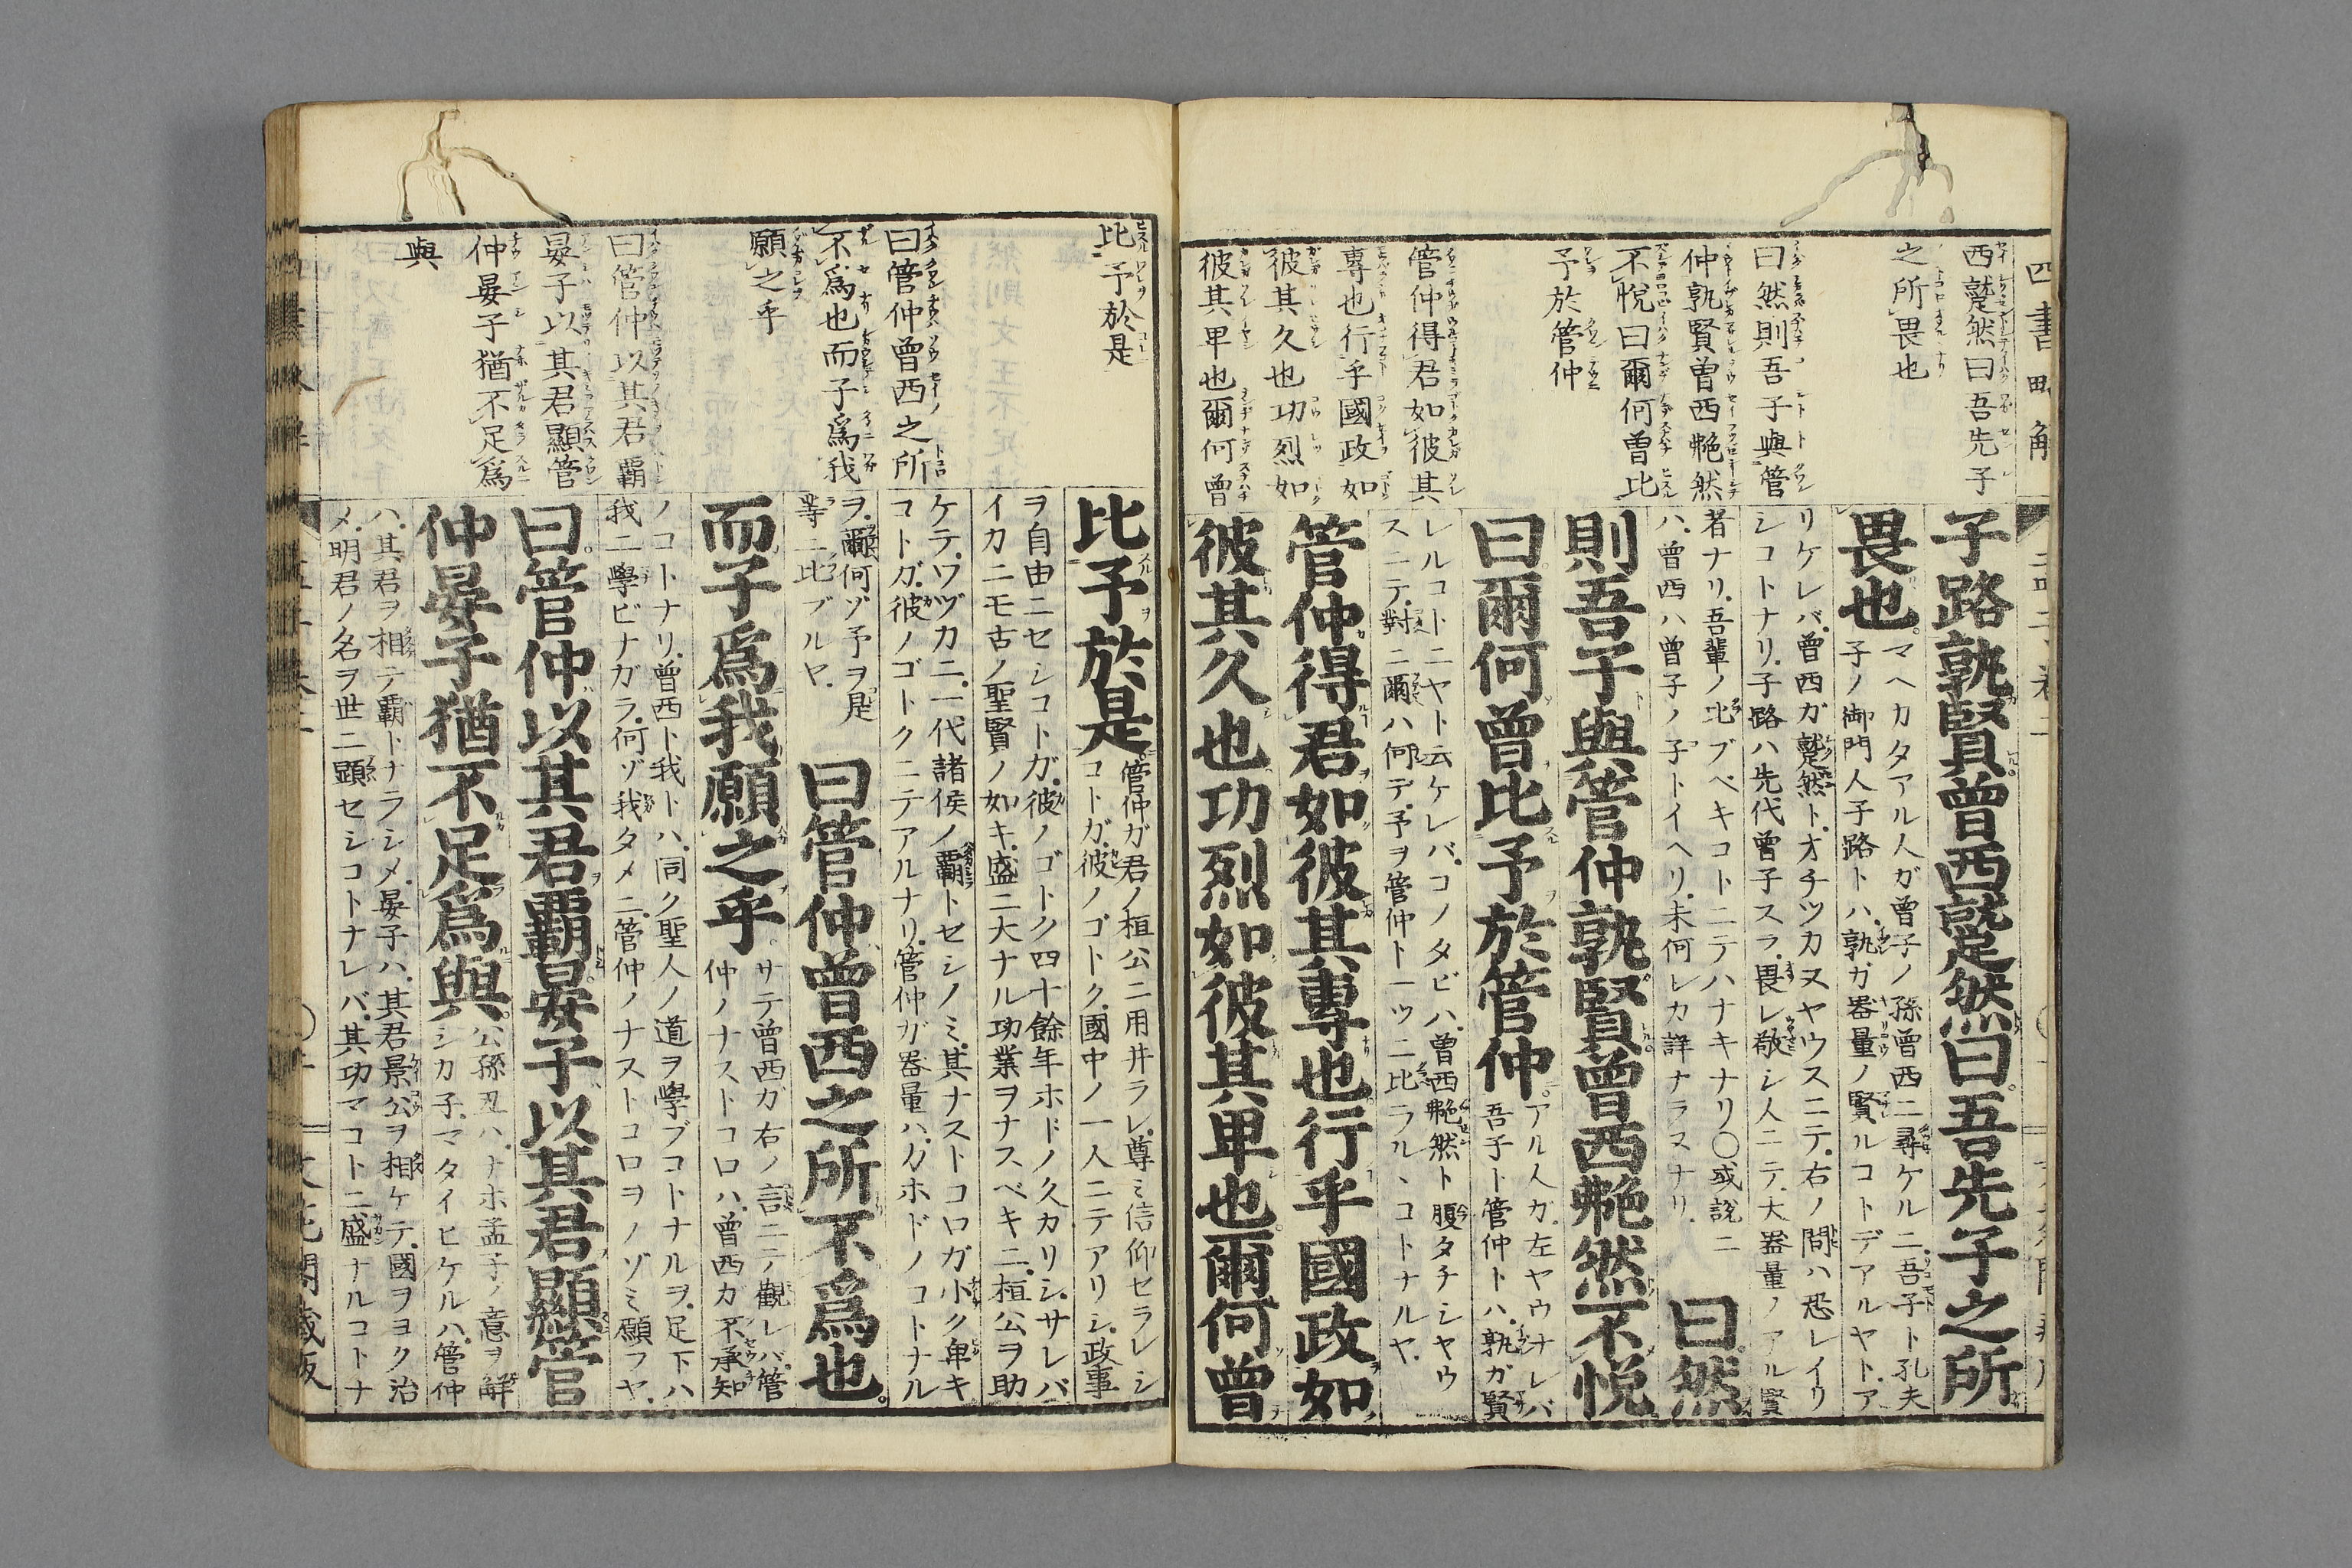 四書略解
西蹵然曰吾先子
之所畏也
曰然則吾子與管
仲孰賢曾西艴然
不悅曰爾何曾比
予於管仲
管仲得君如彼其
專也行乎國政如
彼其久也功烈如
彼其卑也爾何曾
子路孰賢曾西蹵然曰吾先子之所
畏也
マヘカタアル人ガ曾子ノ孫曾西ニ尋ケルニ吾子ト孔夫
子ノ御門人子路トハ孰ガ器量ノ賢ルコトデアルヤトア
リケレバ曾西ガ蹵然トオチツカヌヤウスニテ右ノ問ハ恐レイリ
シコトナリ子路ハ先代曾子スラ畏レ敬シ人ニテ大器量ノアル賢
者ナリ吾輩ノ比ブベキコトニテハナキナリ〇或說ニ
ハ曾西ハ曾子ノ子トイヘリ未何レカ詳ナラヌナリ
曰然
則吾子與管仲孰賢曾西艴然不悅
曰爾何曾比予於管仲
アル人カ左ヤウナレバ
吾子ト管仲トハ孰ガ賢
レルコトニヤト云ケレバコノタビハ曾西艴然ト腹タチシヤウ
スニテ對ニ爾ハ何デ予ヲ管仲ト一ツニ比ラルヽコトナルヤ
管仲得君如彼其專也行乎國政如
彼其久也功烈如彼其卑也爾何曾
比予於是
曰管仲曾西之所
不爲也而子爲我
願之乎
曰管仲以其君霸
晏子以其君顯管
仲晏子猶不足爲
與
比予於是
管仲ガ君ノ桓公ニ用井ラレ尊ミ信仰セラレシ
コトガ彼ノゴトク國中ノ一人ニテアリシ政事
ヲ自由ニセシコトガ彼ノゴトク四十餘年ホドノ久カリシサレバ
イカニモ古ノ聖賢ノ如キ盛ニ大ナル功業ヲナスベキニ桓公ヲ助
ケテワヅカニ一代諸侯ノ霸トセシノミ其ナストコロガ小ク卑キ
コトガ彼ノゴトクニテアルナリ管仲ガ器量ハカホドノコトナル
ヲ爾何ゾ予ヲ是
等ニ比ブルヤ
曰管仲曾西之所不爲也
而子爲我願之乎
サテ曾西ガ右ノ言ニテ觀レバ管
仲ノナストコロハ曾西カ不承知
ノコトナリ曾西ト我トハ同ク聖人ノ道ヲ學ブコトナルヲ足下ハ
我ニ學ビナガラ何ゾ我タメニ管仲ノナストコロヲノゾミ願フヤ
曰管仲以其君霸晏子以其君顯管
仲晏子猶不足爲與
公孫丑ハナホ孟子ノ意ヲ解
シカ子マタイヒケルハ管仲
ハ其君ヲ相テ霸トナラシメ晏子ハ其君景公ヲ相ケテ國ヲヨク治
メ明君ノ名ヲ世ニ顯セシコトナレバ其功マコトニ盛ナルコトナ